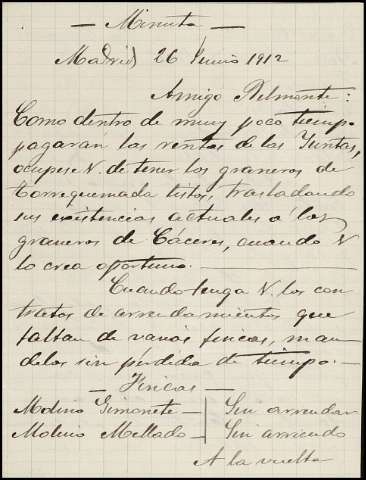 — Minuta —
Madrid 26 Junio 1912
Amigo Belmonte:
Como dentro de muy poco tiempo
pagaran las rentas de las Juntas,
ocupese V. de tener los graneros de
Torrequemada listos, trasladando
sus existencias actuales a los
graneros de Cáceres, cuando V.
lo crea oportuno.
Cuando tenga V. los con
tratos de arrendamientos que
faltan de varias fincas, man
delos sin pérdida de tiempo. —
— Fincas —
Molino Gimonete — Sin arrendar
Molino Mellado — Sin arriendo
A la vuelta